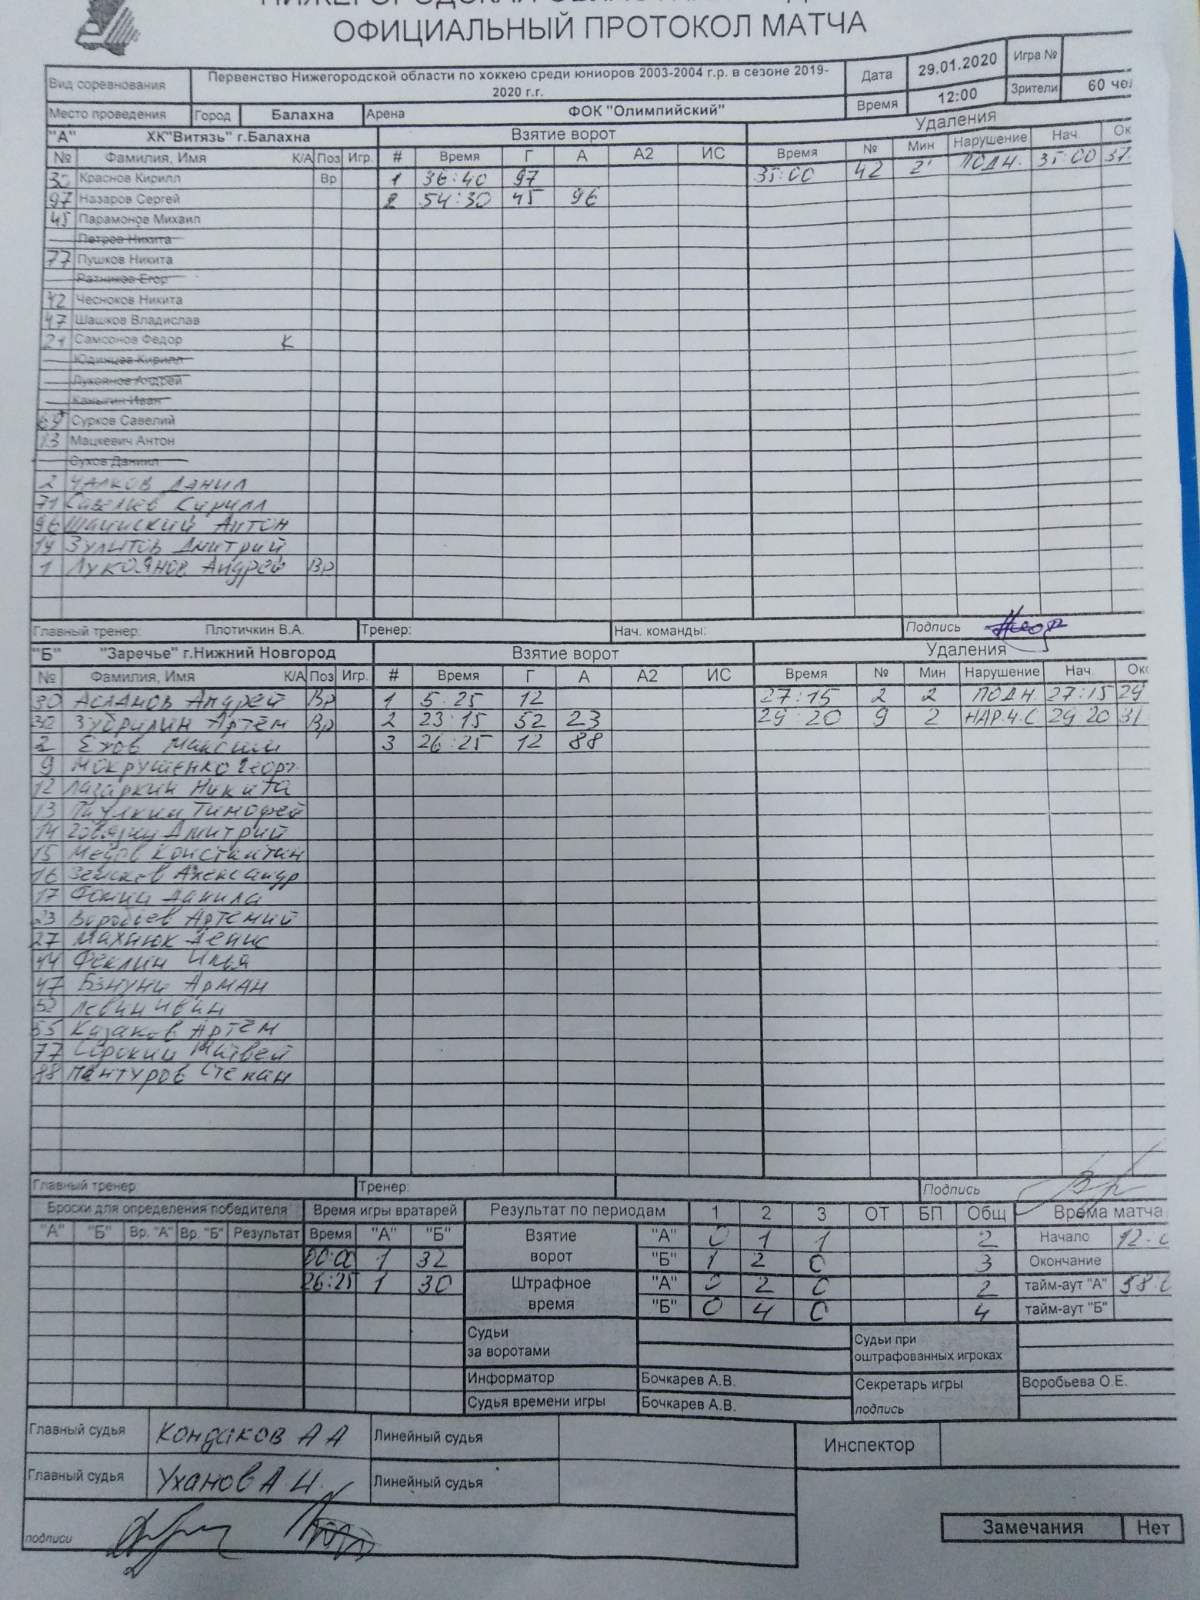 ОФИЦИАЛЬНЫЙ ПРОТОКОЛ МАТЧА
Вид соревнования Первенство Нижегородской области по хоккею среди юниоров 2003-2004 г.р. в сезоне 2019-2020 г.г. Дата 29.01.2020 Игра №
Место проведения Город Балахна Арена ФОК "Олимпийский" Время 12:00 Зрители 60
"А" ХК"Витязь" г.Балахна Взятие ворот Удаления
№ Фамилия, Имя К/А Поз Игр. # Время Г А А2 ИС Время № Мин Нарушение Нач. Ок
Краснов Кирилл Вр 1 36:40 97 35:00 42 2' ПОДН. 35:00 37
97 Назаров Сергей 2 54:30 45 96
45 Парамонов Михаил
Петров Никита
77 Пушков Никита
Ратников Егор
42 Чесноков Никита
47 Шашков Владислав
21 Самсонов Федор К
Юдинцев Кирилл
Лукоянов Андрей
Каныгин Иван
69 Сурков Савелий
13 Мацкевич Антон
Сухов Даниил
2 Чалков Данил
71 Савельев Кирилл
96 Антон
19 Дмитрий
1 Лукоянов Андрей Вр
Главный тренер: Плотичкин В.А. Тренер: Нач. команды: Подпись
"Б" "Заречье" г.Нижний Новгород Взятие ворот Удаления
№ Фамилия, Имя К/А Поз Игр. # Время Г А А2 ИС Время № Мин Нарушение Нач. Ок
30 Асланов Андрей Вр 1 5:25 12 27:15 2 2 ПОДН. 27:15 29
32 Зубрилин Артём Вр 2 23:15 52 23 29:20 9 2 НАР.Ч.С 29 20 31
2 Ежов Максим 3 26:25 12 88
9 Мокрушенко Георг.
12 Лазаркин Никита
13 Тимофей
14 Дмитрий
15 Константин
16 Александр
17 Фомин Данила
23 Воробьев Артемий
27 Махнюк Денис
44 Феклин Илья
47 Бзнуни Арман
52 Левин Иван
55 Казаков Артём
77 Сорокин Матвей
88 Пантуров Степан
Главный тренер Тренер: Подпись
Броски для определения победителя Время игры вратарей Результат по периодам 1 2 3 ОТ БП Общ Время матча
"А" "Б" Вр. "А" Вр. "Б" Результат Время "А" "Б" Взятие ворот "А" 0 1 1 2 Начало
00:00 1 32 "Б" 1 2 0 3 Окончание
26:25 1 30 Штрафное время "А" 0 2 0 2 тайм-аут "А"
"Б" 0 4 0 4 тайм-аут "Б"
Судьи за воротами Судьи при оштрафованных игроках
Информатор Бочкарев А.В. Секретарь игры Воробьева О.Е.
Судья времени игры Бочкарев А.В. подпись
Главный судья Кондаков А А Линейный судья Инспектор
Главный судья Уханов А И. Линейный судья
подписи
Замечания Нет